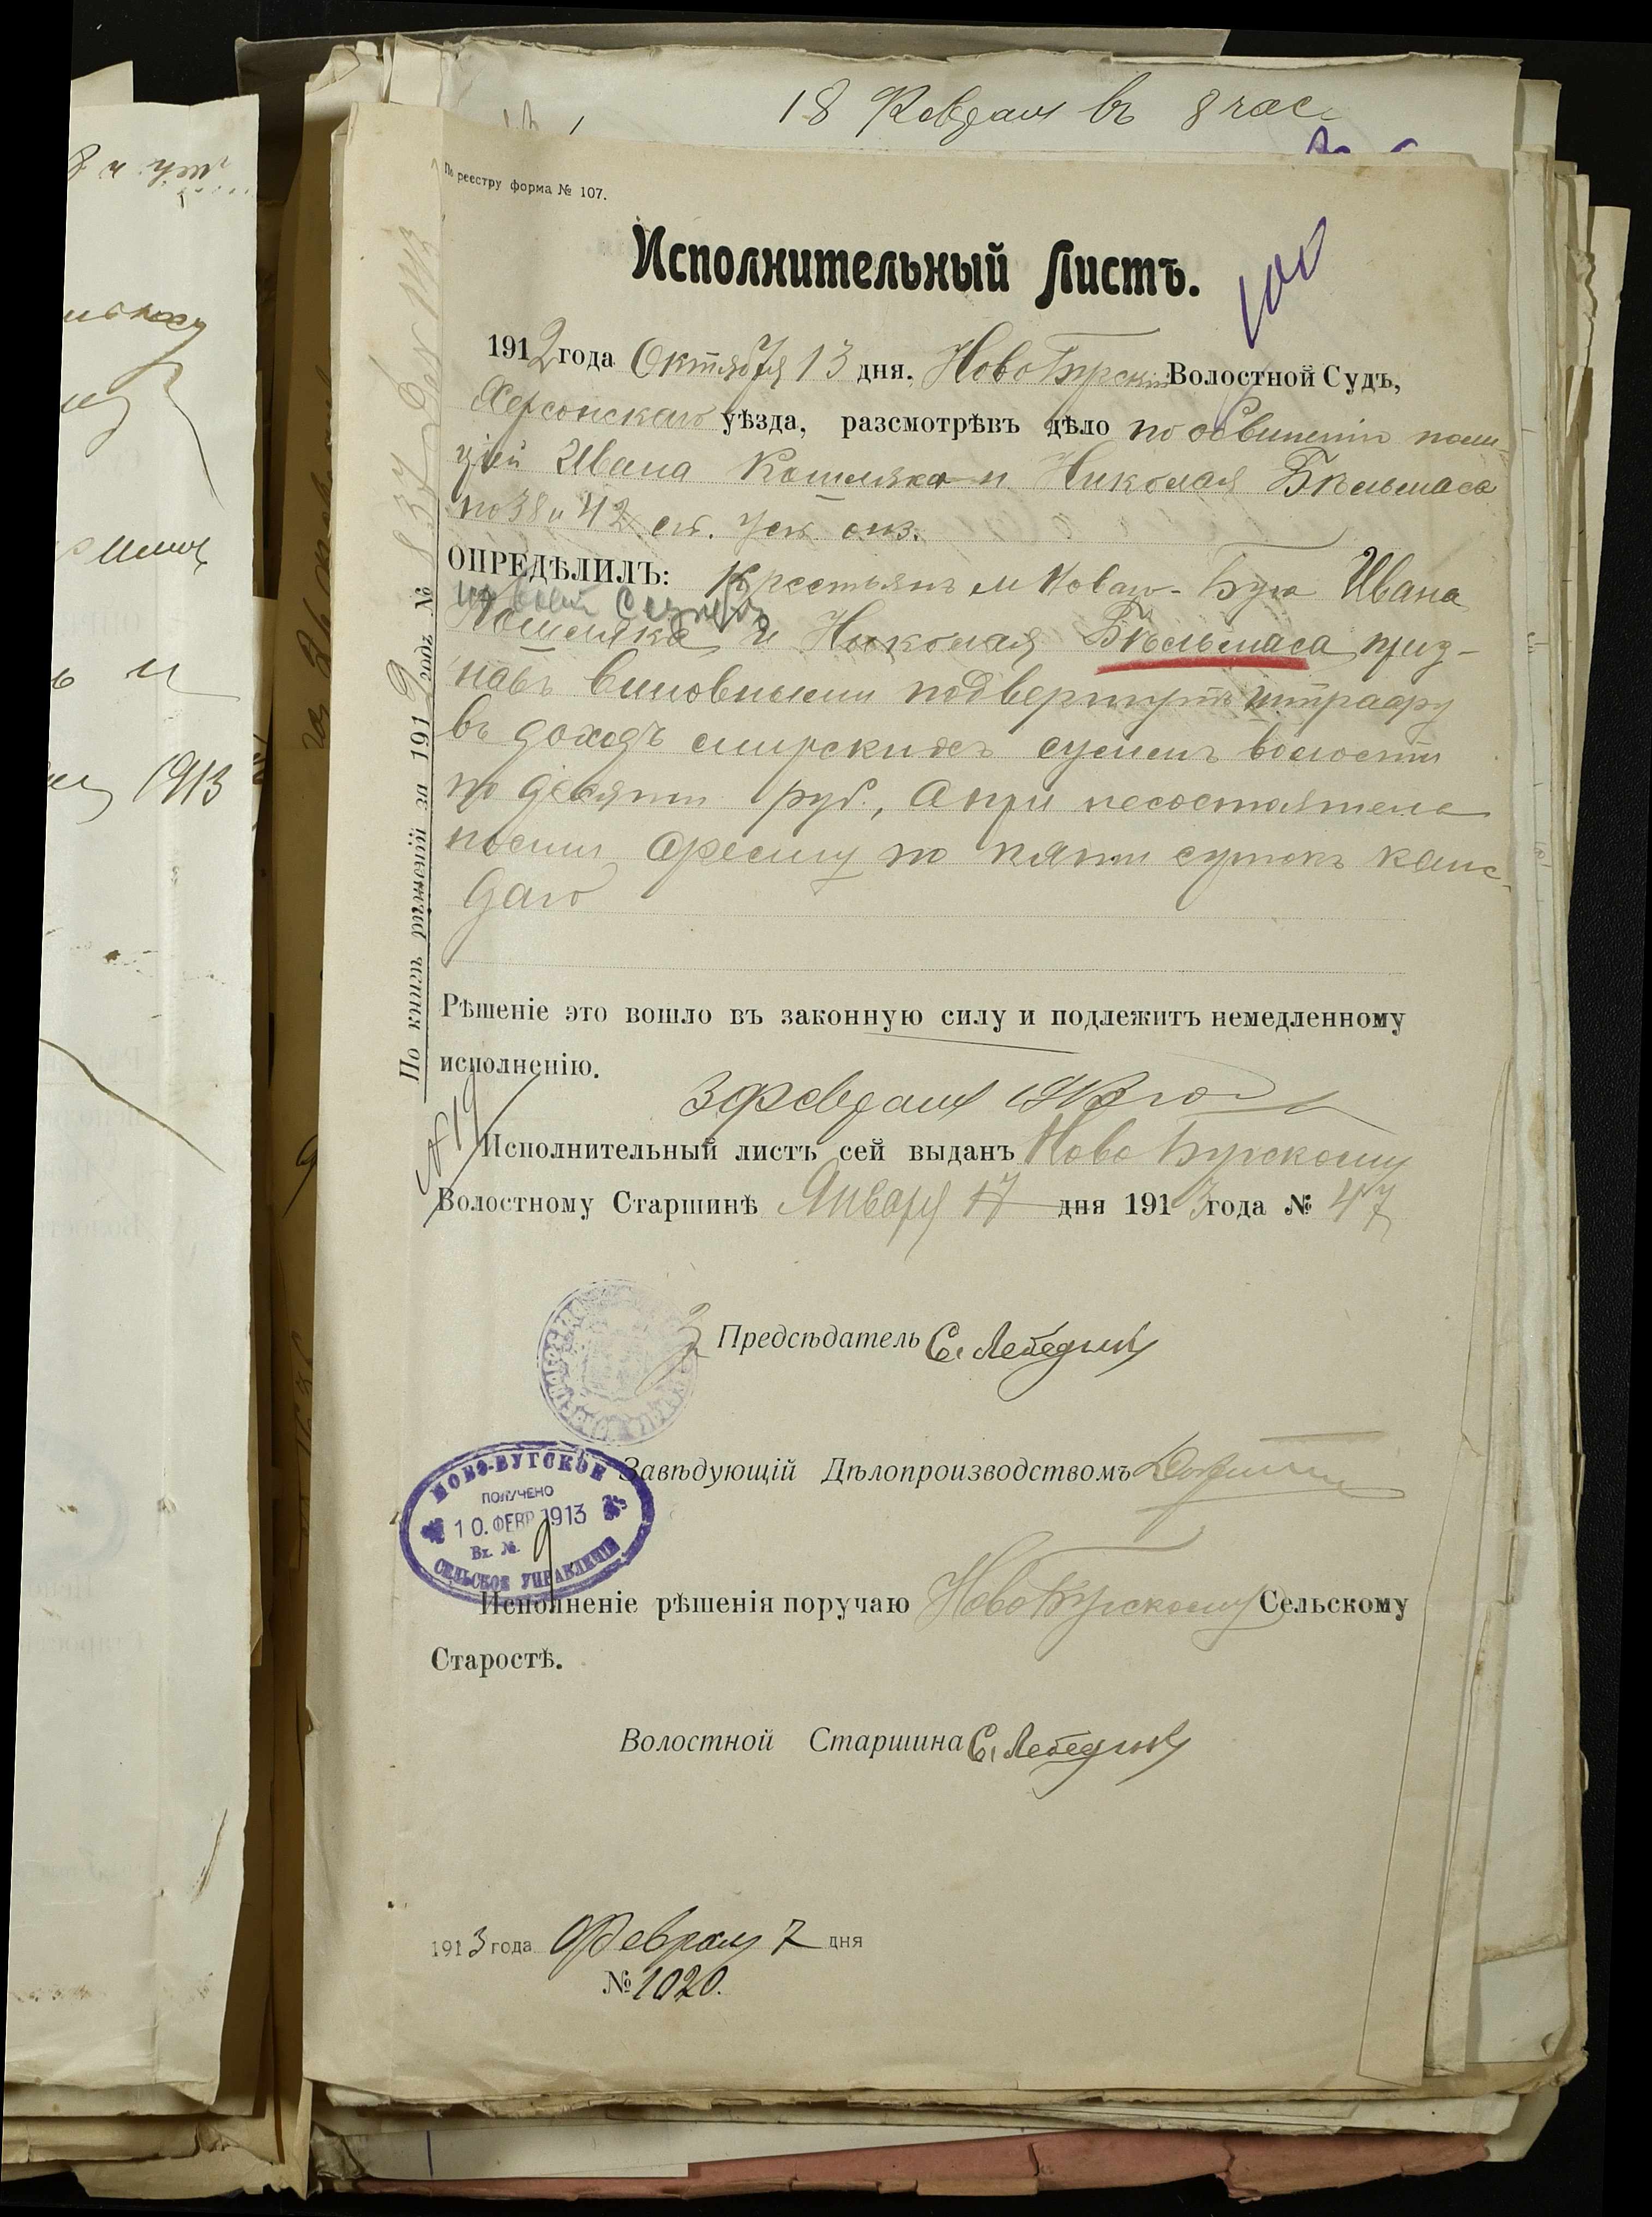 18 Февраля въ 8 час
По реестру форма № 107.
Исполнительный Листъ.
100
1912 года Октября 13 дня. Ново Бугскій Волостной Судъ,
Херсонскаго уѣзда, разсмотрѣвъ дѣло по обвиненію поли-
ціей Ивана Кошеляка и Николая Бѣльмаса
по 38 и 42 ст. Уст. о нз.
ОПРЕДѢЛИЛЪ: Крестьянъ м Новаго-Буга Ивана
Кошеляка и Николая Бѣльмаса приз-
навъ виновными подвергнуть штрафу
въ доходъ мирскихъ суммъ волости
по десяти руб., а при несостоятель
ности аресту по пяти сутокъ каж-
даго
По книгѣ рѣшеній за 1912 годъ № 837
Рѣшеніе это вошло въ законную силу и подлежитъ немедленному
исполненію.
3 Февраля 1913 го
№ 19
Исполнительный листъ сей выданъ Ново Бугскому
Волостному Старшинѣ Января 17 дня 1913 года № 47
Предсѣдатель С. Лебедин
Завѣдующій Дѣлопроизводствомъ
НОВО-БУГСКОЕ
ПОЛУЧЕНО
10. ФЕВР 1913
Вх. №. 9
СЕЛЬСКОЕ УПРАВЛЕНІЕ
Исполненіе рѣшенія поручаю Ново Бугскому Сельскому
Старостѣ.
Волостной Старшина С. Лебедин
1913 года Февраля 7 дня
№ 1020.
1913